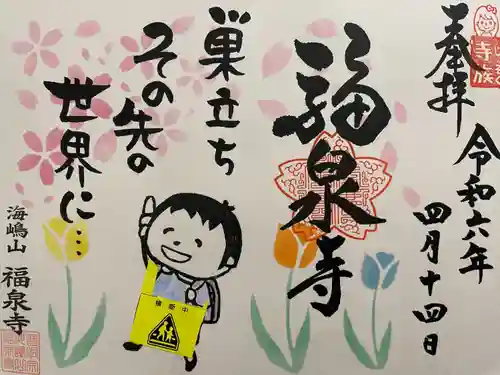 奉拝
令和六年
四月十四日
福泉寺
巣立ち
その先の
世界に…
海嶋山
福泉寺
横断中